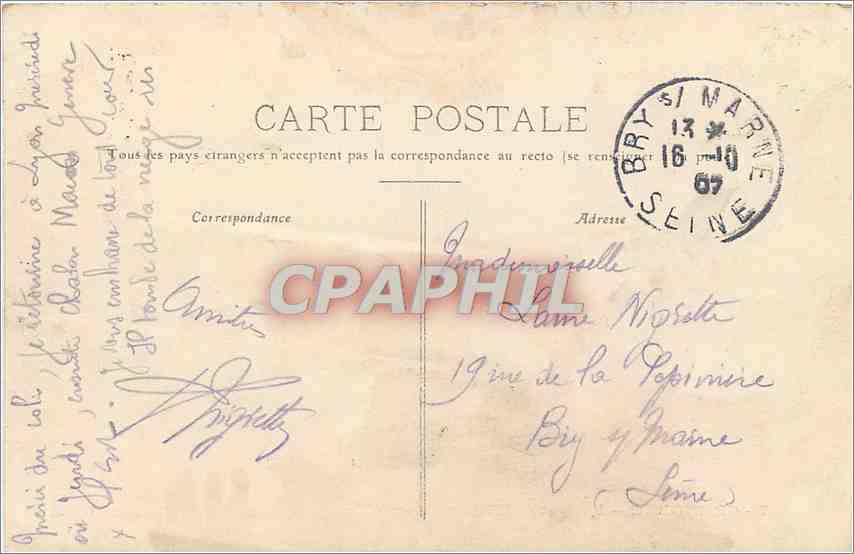 CARTE POSTALE
Tous les pays étrangers n'acceptent pas la correspondance au recto (se renseigner
Correspondance
Adresse
BRY s/ MARNE
13
16 10
07
SEINE
CPAPHIL
Mademoiselle
Nigrette
19 rue de la Pépinière
Bry s/ Marne
(Seine)
Amitiés
Nigrette
Merci du colis, je retourne à Lyon mercredi
ou jeudi, ensuite Chalon Macon Genève
Je vous embrasse de tout coeur.
Il tombe de la neige ici